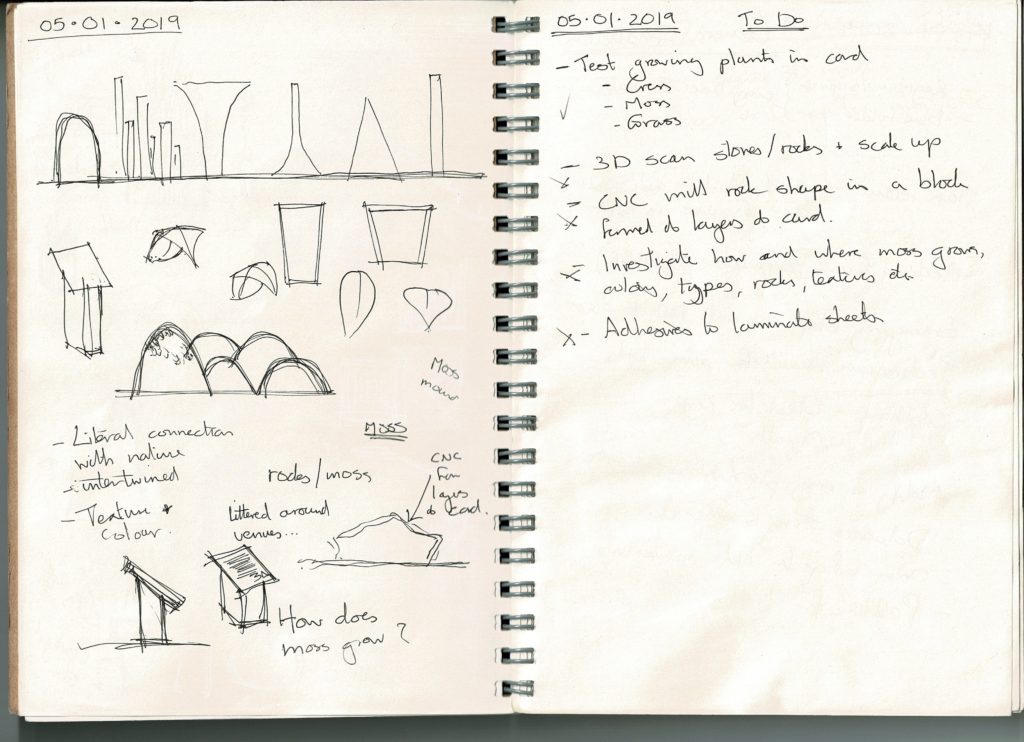 05·01·2019
Moss
- Literal connection
with nature
- intertwined
- Texture +
colour.
Moss
rocks/moss
littered around
venues...
CNC
layers
card.
How does
moss grow?
05·01·2019 To Do
- Test growing plants in card
- Cress
- Moss
- Grass
- 3D scan stones/rocks + scale up
- CNC mill rock shape in a block
layers card.
- Investigate how and where moss grows,
colours, types, rocks, textures etc
- Adhesives to laminate sheets